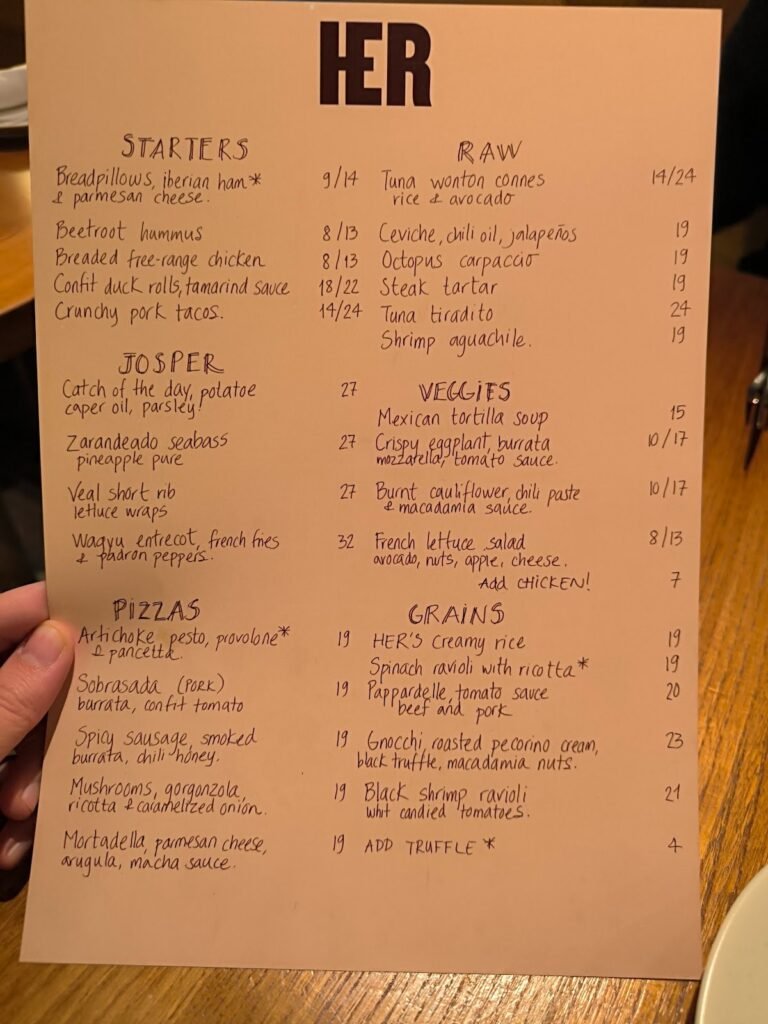 HER
STARTERS
Breadpillows, iberian ham* 9/14
& parmesan cheese.
Beetroot hummus 8/13
Breaded free-range chicken 8/13
Confit duck rolls, tamarind sauce 18/22
Crunchy pork tacos. 14/24
JOSPER
Catch of the day, potatoe 27
caper oil, parsley!
Zarandeado seabass 27
pineapple pure
Veal short rib 27
lettuce wraps
Wagyu entrecot, french fries 32
& padron peppers.
PIZZAS
Artichoke pesto, provolone* 19
& pancetta.
Sobrasada (PORK) 19
burrata, confit tomato
Spicy sausage, smoked 19
burrata, chili honey.
Mushrooms, gorgonzola, 19
ricotta & caramelized onion.
Mortadella, parmesan cheese, 19
arugula, macha sauce.
RAW
Tuna wonton connes 14/24
rice & avocado
Ceviche, chili oil, jalapeños 19
Octopus carpaccio 19
Steak tartar 19
Tuna tiradito 24
Shrimp aguachile. 19
VEGGIES
Mexican tortilla soup 15
Crispy eggplant, burrata 10/17
mozzarella, tomato sauce.
Burnt cauliflower, chili paste 10/17
& macadamia sauce.
French lettuce salad 8/13
avocado, nuts, apple, cheese.
Add CHICKEN! 7
GRAINS
HER'S Creamy rice 19
Spinach ravioli with ricotta* 19
Pappardelle, tomato sauce 20
beef and pork
Gnocchi, roasted pecorino cream, 23
black truffle, macadamia nuts.
Black shrimp ravioli 21
whit candied tomatoes.
ADD TRUFFLE* 4